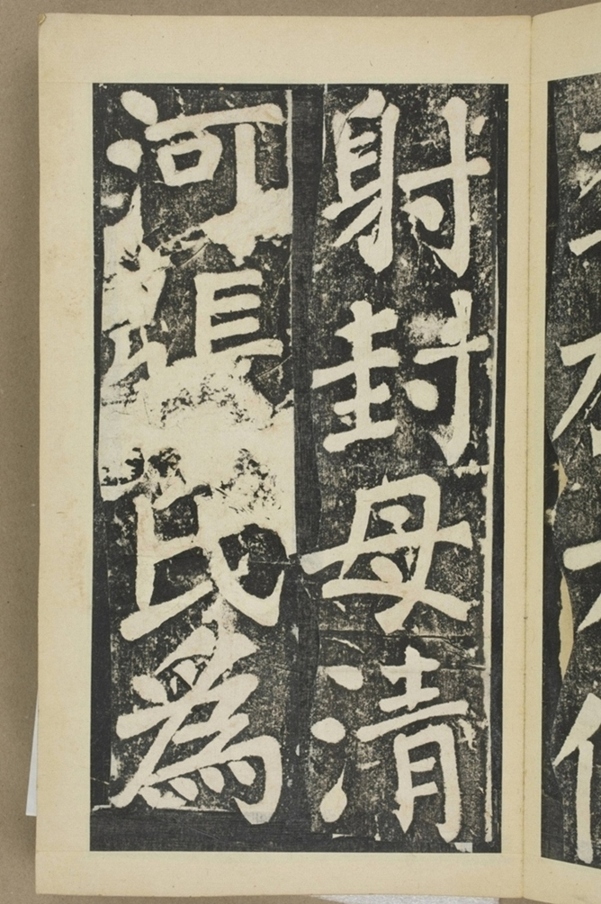 射封母清
河張氏為